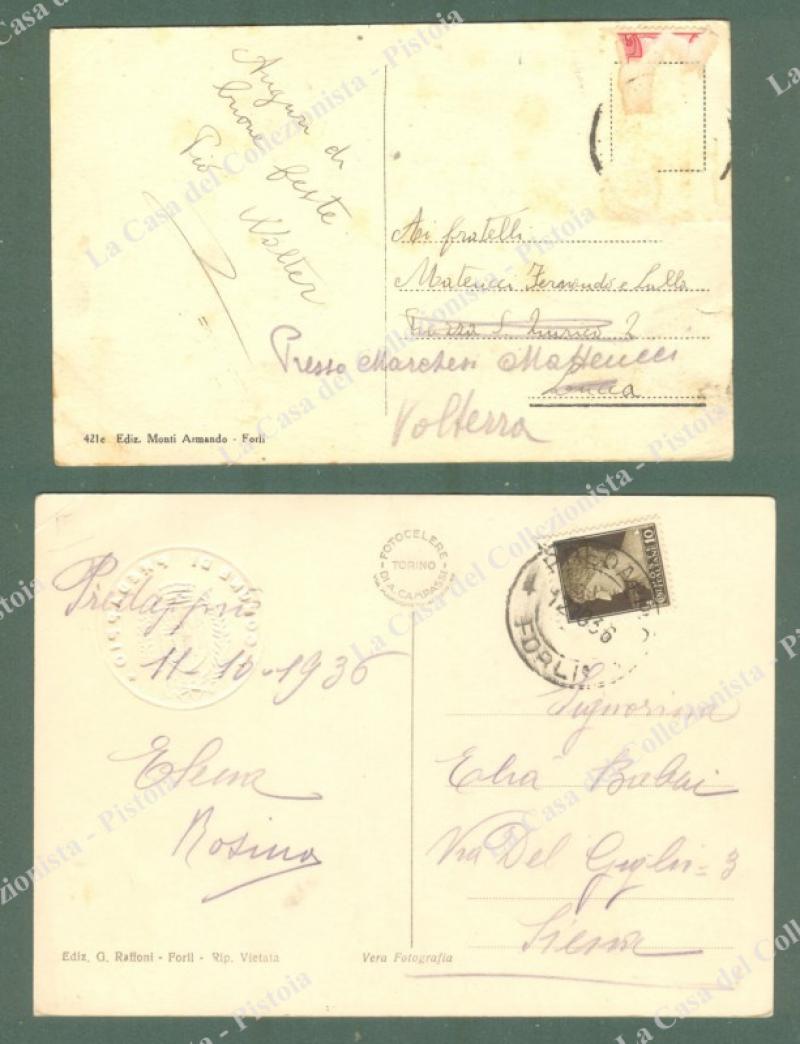 Auguri di
buone feste
Pio Walter
Ai fratelli
Matteucci Fernando e Lalla
Piazza S. 2
Presso Marchesi Matteucci
Lucca
Volterra
421e Ediz. Monti Armando - Forlì
Predappio
11-10-1936
Elena
Rosina
FOTOCELERE
TORINO
DI A. CAMPASSI
10
FORLI
Signorina
Via Del Giglio = 3
Siena
Ediz. G. Raffoni - Forlì - Rip. Vietata
Vera Fotografia
La Casa del Collezionista - Pistoia